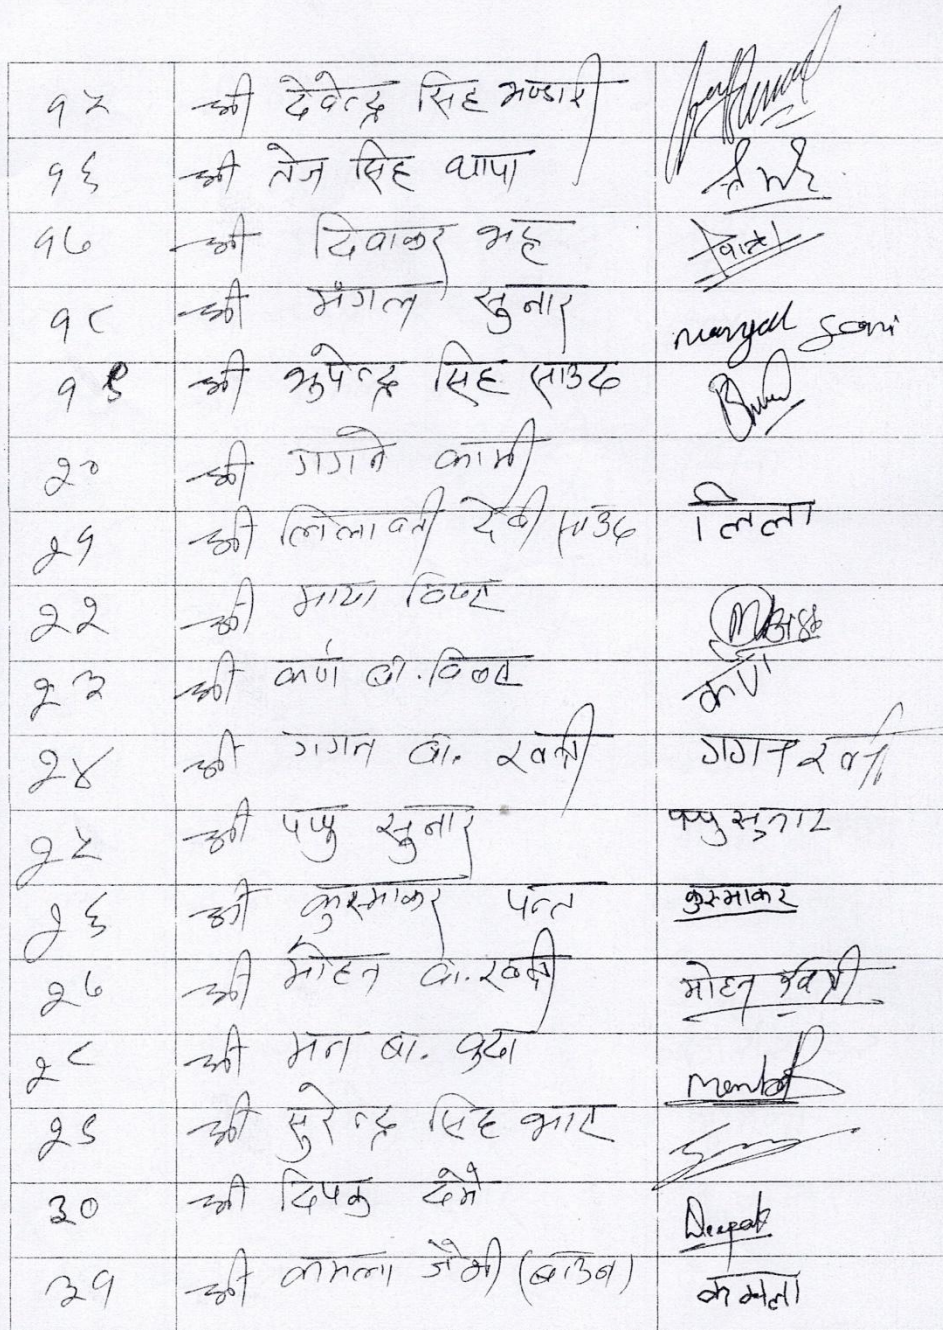 १५ श्री देवेन्द्र सिंह भण्डारी
१६ श्री तेज सिंह थापा
१७ श्री दिवाकर भट्ट
१८ श्री मंगल सुनार
१९ श्री भुपेन्द्र सिंह साउद
२० श्री गगने कामी
२१ श्री लिलावती देवी साउद लिला
२२ श्री माया
२३ श्री कर्ण ब. कर्ण
२४ श्री गगन ब. खत्री गगन खत्री
२५ श्री पप्पु सुनार पप्पु सुनार
२६ श्री कुस्माकर पन्त कुस्माकर
२७ श्री मोहन ब. खत्री मोहन खत्री
२८ श्री मन ब.
२९ श्री सुरेन्द्र सिंह
३० श्री दिपक दमै Deepak
३१ श्री कमला जैसी कमला